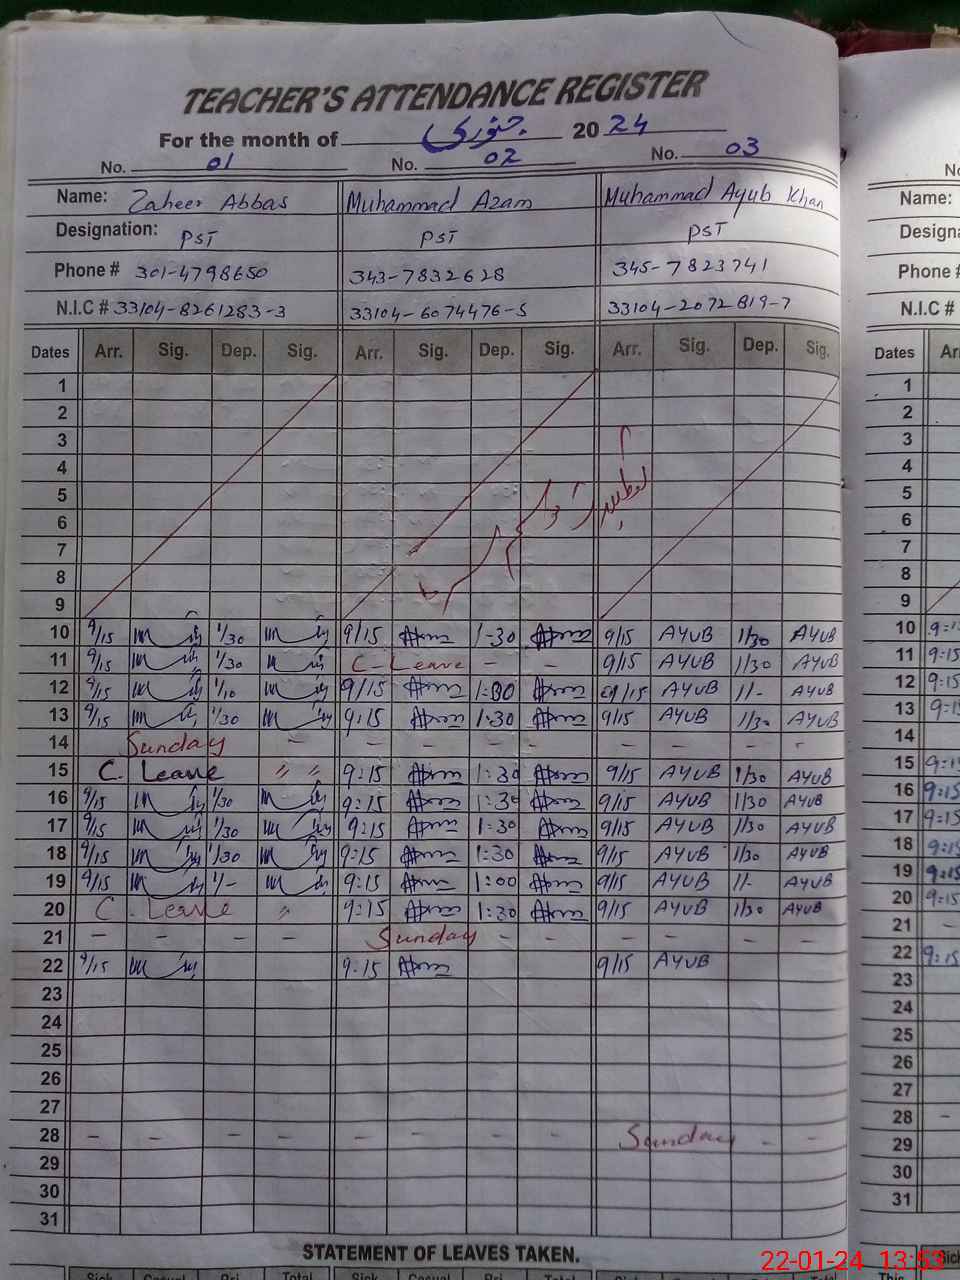 TEACHER'S ATTENDANCE REGISTER
For the month of جنوری 2024
No. 01 No. 02 No. 03
Name: Zaheer Abbas Muhammad Azam Muhammad Ayub Khan Name:
Designation: PST PST PST
Phone # 301-4798650 343-7832628 345-7823741 Phone #
N.I.C # 33104-8261283-3 33104-6074476-5 33104-2072819-7 N.I.C #
Dates Arr. Sig. Dep. Sig. Arr. Sig. Dep. Sig. Arr. Sig. Dep. Sig. Dates
1 1
2 2
3 3
4 4
5 5
6 6
7 7
8 8
9 9
10 9/15 1/30 9/15 1-30 9/15 AYUB 1/30 AYUB 10 9:15
11 9/15 1/30 C-Leave - - 9/15 AYUB 1/30 AYUB 11 9:15
12 9/15 1/10 9/15 1:00 9/15 AYUB 1/- AYUB 12 9:15
13 9/15 1/30 9:15 1:30 9/15 AYUB 1/30 AYUB 13 9:15
14 Sunday - - - - - - - - - 14
15 C. Leave " " 9:15 1:30 9/15 AYUB 1/30 AYUB 15 9:15
16 9/15 1/30 9:15 1:30 9/15 AYUB 1/30 AYUB 16 9:15
17 9/15 1/30 9:15 1:30 9/15 AYUB 1/30 AYUB 17 9:15
18 9/15 1/30 9:15 1:30 9/15 AYUB 1/30 AYUB 18 9:15
19 9/15 1/- 9:15 1:00 9/15 AYUB 1/- AYUB 19 9:15
20 C. Leave " 9:15 1:30 9/15 AYUB 1/30 AYUB 20 9:15
21 - - - - Sunday - - - - - - 21 -
22 9/15 9:15 9/15 AYUB 22 9:15
23 23
24 24
25 25
26 26
27 27
28 - - - - - - - - Sunday - - 28 -
29 29
30 30
31 31
STATEMENT OF LEAVES TAKEN.
22-01-24 13:53